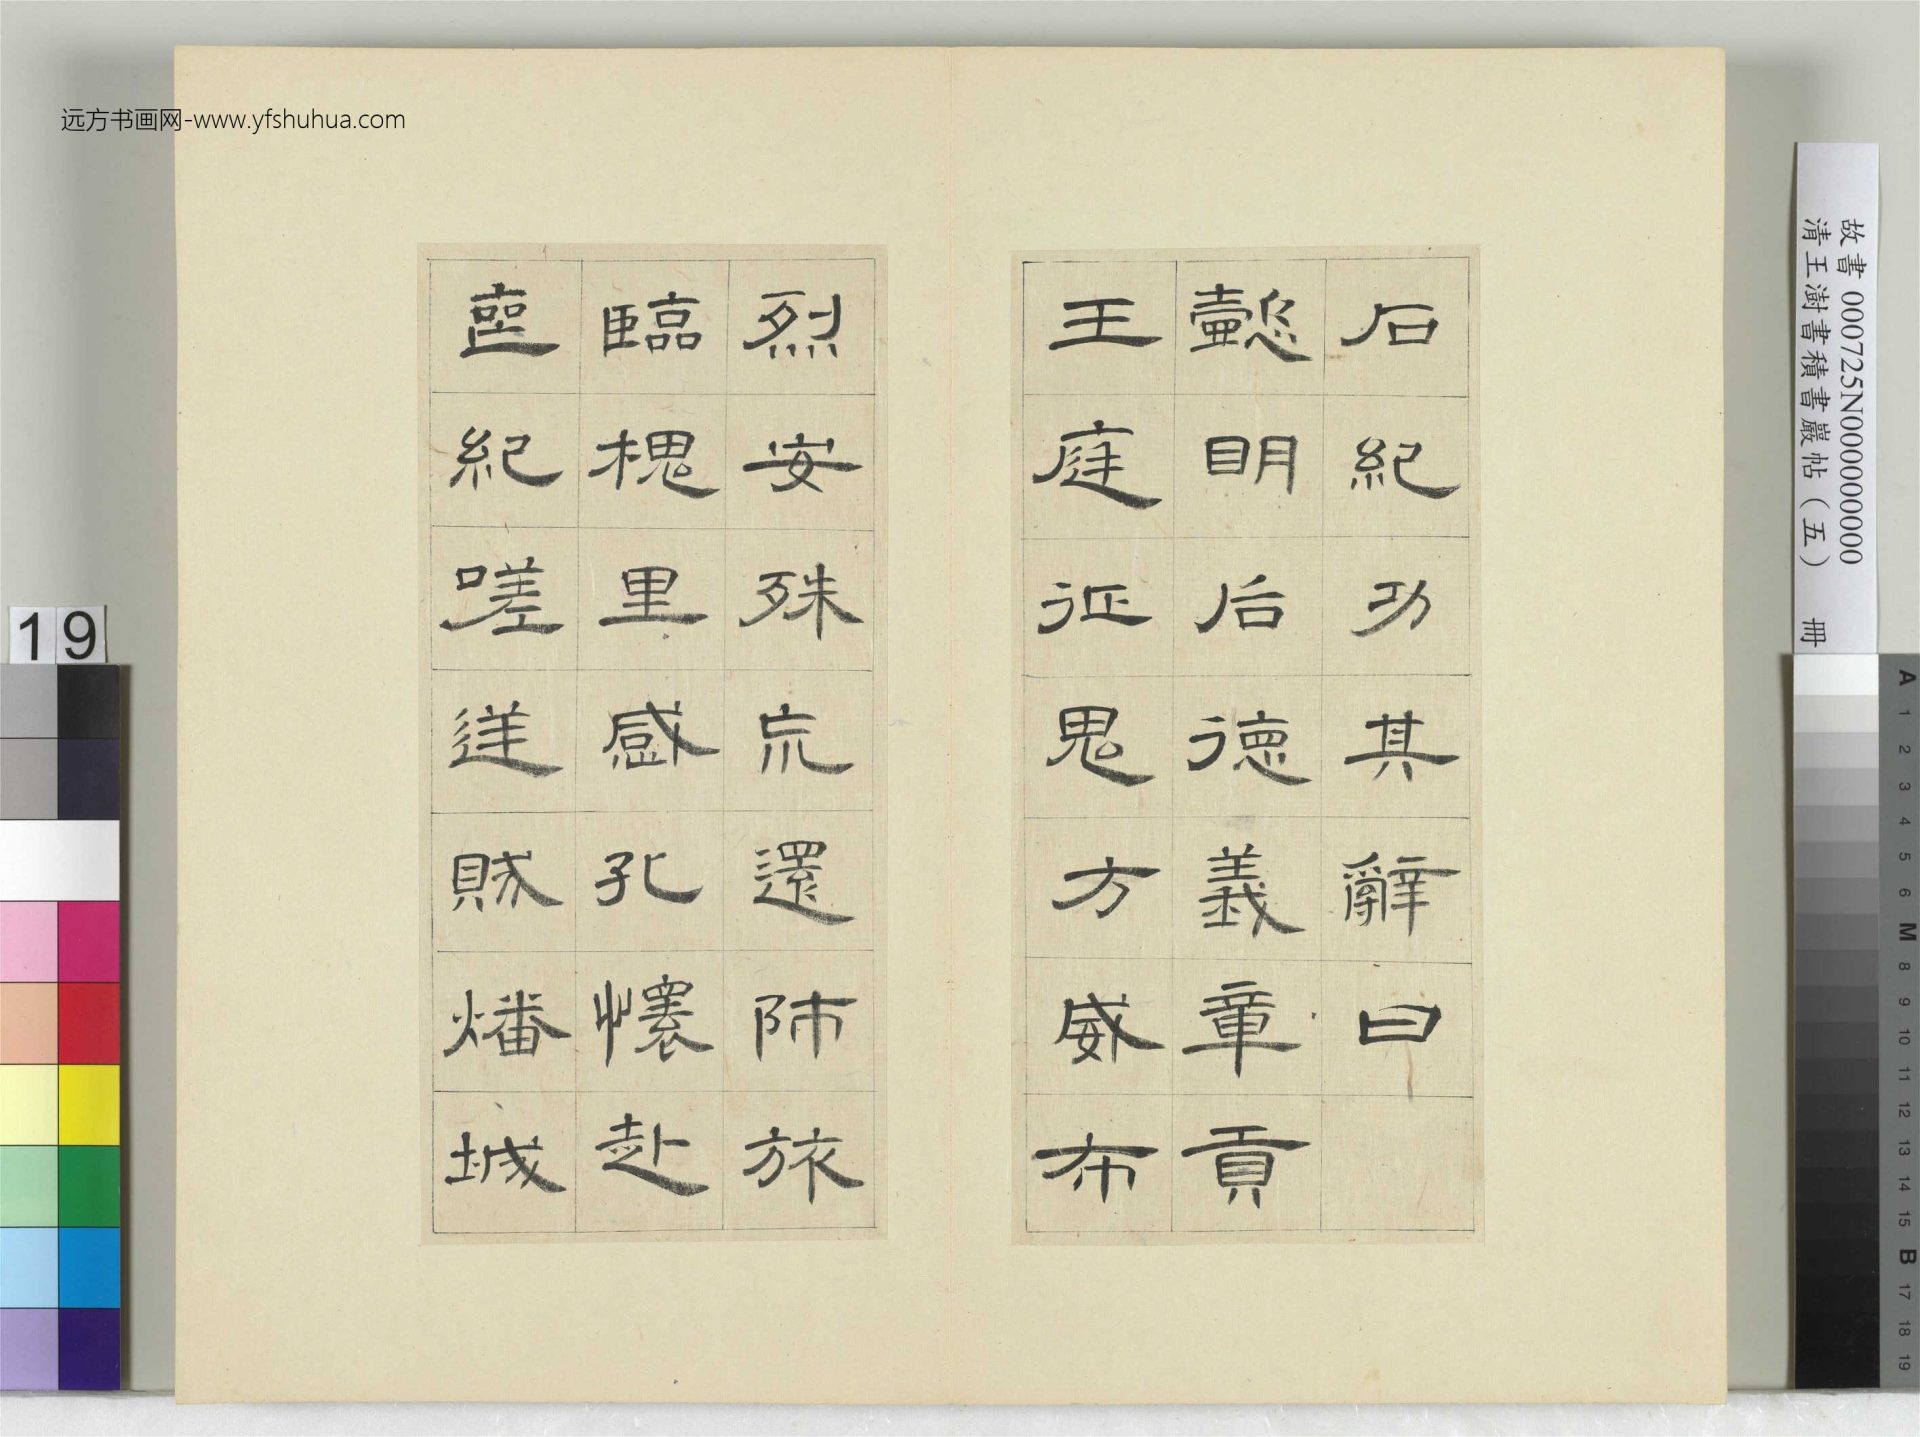 远方书画网-www.yfshuhua.com
石紀功其辭曰
懿眀后德義章貢
王庭征鬼方威布
烈安殊荒還師旅
臨槐里感孔懷赴
喪紀嗟逆賊燔城
故書 000725N000000000
清王澍書積書巖帖（五） 冊
19
A 1 2 3 4 5 6 M 8 9 10 11 12 13 14 15 B 17 18 19